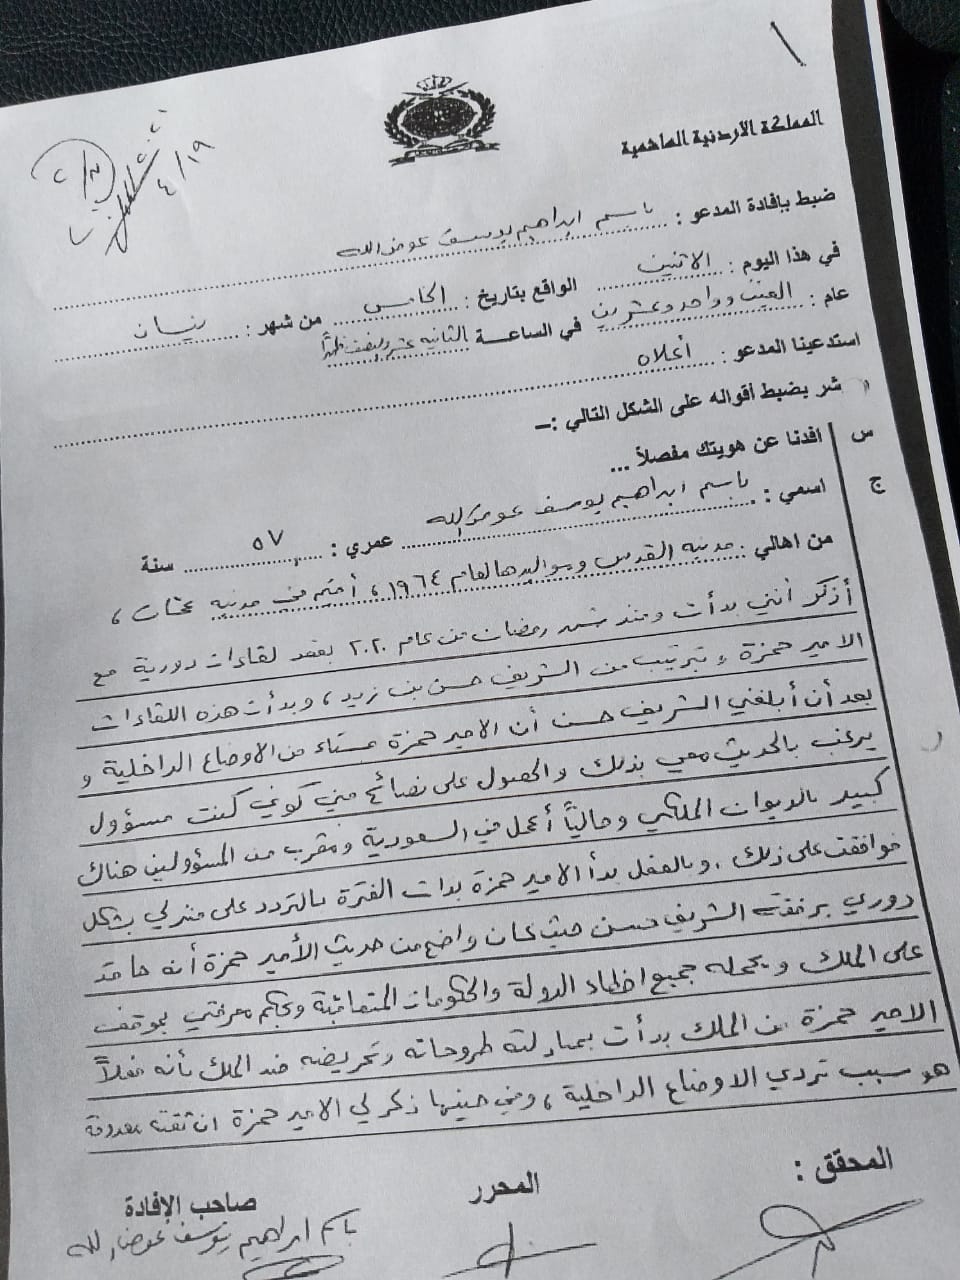 ١
٤/١٩
المملكة الاردنية الهاشمية
ضبط بإفادة المدعو : باسم ابراهيم يوسف عوض الله
في هذا اليوم : الاثنين الواقع بتاريخ : الخامس من شهر : نيسان
عام : الفين وواحد وعشرين في الساعة الثانية عشر ونصف ظهراً
استدعينا المدعو : أعلاه
شر بضبط أقواله على الشكل التالي :–
س افدنا عن هويتك مفصلاً ...
ج اسمي : باسم ابراهيم يوسف عوض الله عمري : ٥٧ سنة
من اهالي : مدينه القدس ومواليدها لعام ١٩٦٤ ، أقيم في مدينه عمان ،
أذكر أنني بدأت ومنذ شهر رمضان من عام ٢٠٢٠ بعقد لقاءات دورية مع
الامير حمزة وبترتيب من الشريف حسن بن زيد ، وبدأت هذه اللقاءات
بعد أن أبلغني الشريف حسن أن الامير حمزة مستاء من الاوضاع الداخلية و
يرغب بالحديث معي بذلك والحصول على نصائح مني كوني كنت مسؤول
كبير بالديوان الملكي وحالياً أعمل في السعودية ومقرب من المسؤولين هناك
فوافقت على ذلك . وبالفعل بدأ الامير حمزة بذات الفترة بالتردد على منزلي بشكل
دوري برفقة الشريف حسن حيث كان واضح من حديث الأمير حمزة أنه حاقد
على الملك و يحمله جميع اخطاء الدولة والحكومات المتعاقبة وبحكم معرفتي بموقف
الامير حمزة من الملك بدأت بمبادلته طروحاته وتحريضه ضد الملك بأنه فعلاً
هو سبب تردي الاوضاع الداخلية ، وفي حينها ذكر لي الامير حمزة ان ثقته معدومة
المحقق : المحرر صاحب الإفادة
باسم ابراهيم يوسف عوض الله